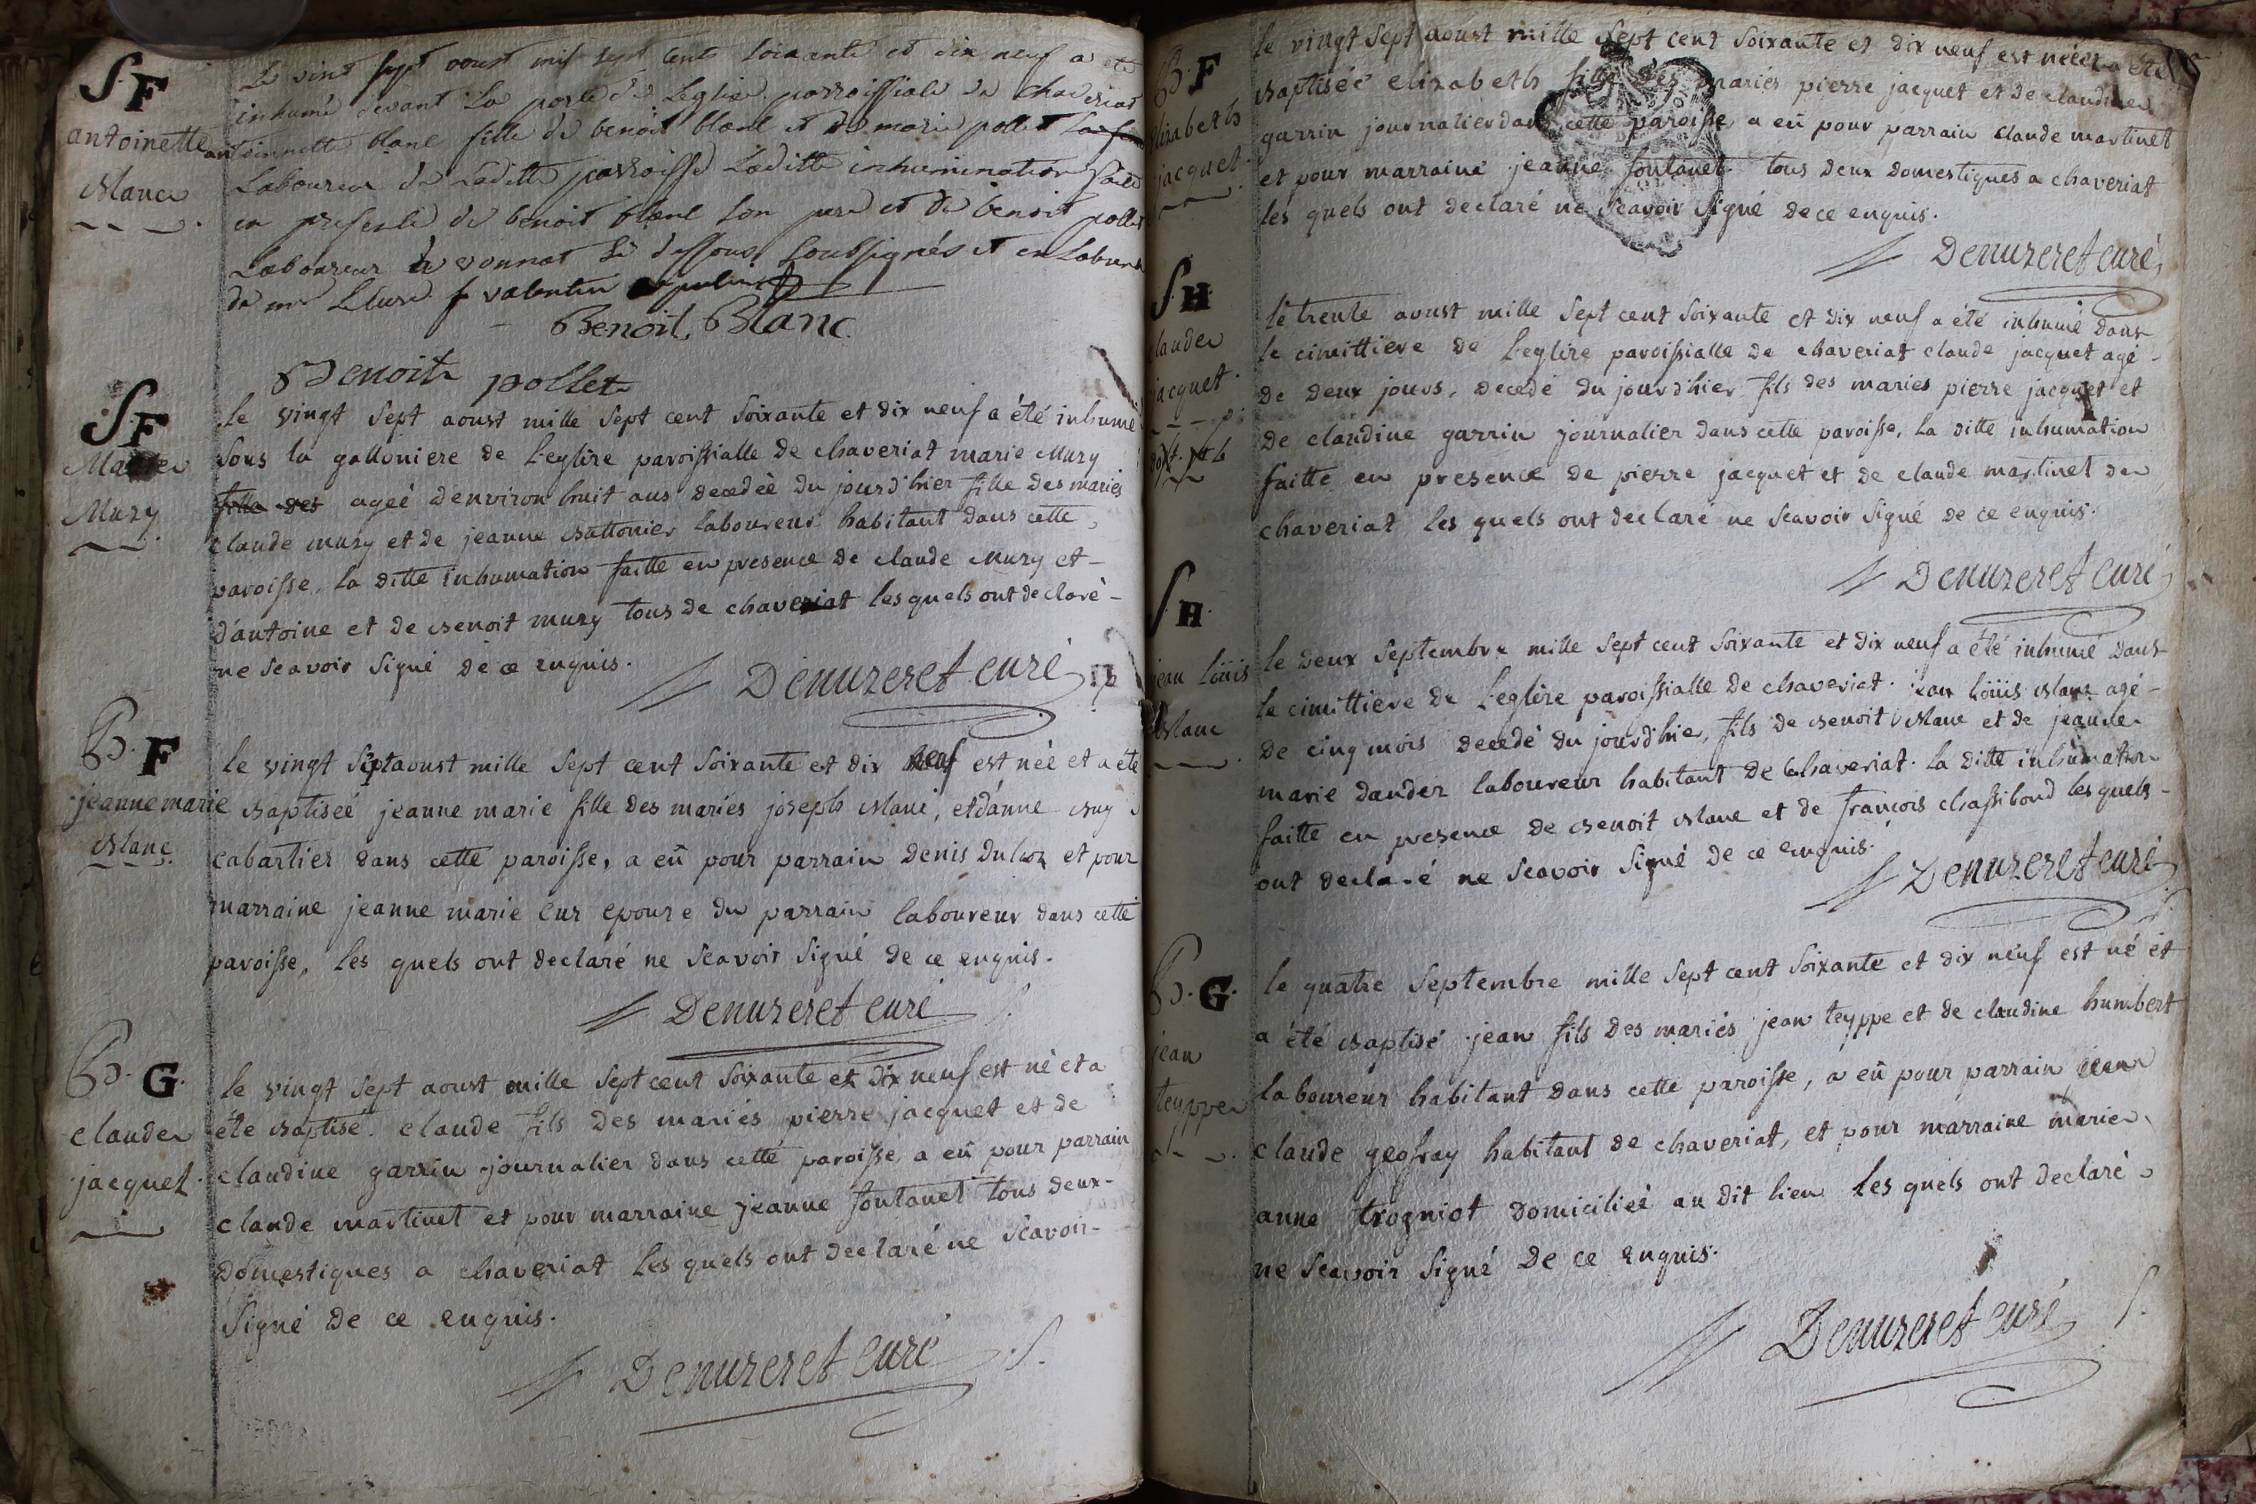 S.F
antoinette
blanc
Le vint sept aoust mil sept cent soixante et dix neuf a eté
inhumé devant La porte de Leglise parroissiale de chaveriat
antoinette blanc fille de benoit blanc et de marie pollet
Laboureur de Laditte parroisse Laditte inhumination faite
en presence de benoit blanc son pere et de benoit pollet
Laboureur de vonnat soussignés et en Labsence
de mr Lcure f valentin
Benoit Blanc
Benoit pollet
S.F
Marie
Mury
le vingt sept aoust mille sept cent soixante et dix neuf a été inhumé
sous la galloniere de l'eglise paroissialle de chaveriat marie Mury
fille des ageé d'environ huit ans decedeé du jourd'hier fille des mariés
claude mury et de jeanne laboureur habitant dans cette
paroisse, la ditte inhumation faitte en presence de claude Mury et
d'antoine et de benoit mury tous de chaveriat les quels ont declaré
ne scavoir signé de ce enquis.
Denuzeret curé
B.F
jeanne marie
blanc
le vingt sept aoust mille sept cent soixante et dix neuf est néé et a été
baptiseé jeanne marie fille des mariés joseph blanc, et d'anne buy
cabartier dans cette paroisse, a eû pour parrain denis et pour
marraine jeanne marie epouse du parrain laboureur dans cette
paroisse, les quels ont declaré ne scavoir signé de ce enquis.
Denuzeret curé
B.G.
claude
jacquet
le vingt sept aoust mille sept cent soixante et dix neuf est né et a
été baptisé claude fils des mariés pierre jacquet et de
claudine garrin journalier dans cette paroisse, a eû pour parrain
claude martinet et pour marraine jeanne fontanet tous deux
domestiques a chaveriat les quels ont declaré ne scavoir
signé de ce enquis.
Denuzeret curé
B.F
elizabeth
jacquet
le vingt sept aoust mille sept cent soixante et dix neuf est néé et a été
baptiseé elizabeth fille des mariés pierre jacquet et de claudine
garrin journalier dans cette paroisse, a eû pour parrain claude martinet
et pour marraine jeanne fontanet tous deux domestiques a chaveriat
les quels ont declaré ne scavoir signé de ce enquis.
Denuzeret curé
S.H
claude
jacquet
le trente aoust mille sept cent soixante et dix neuf a été inhumé dans
le cimittiere de l'eglise paroissialle de chaveriat claude jacquet agé
de deux jours, decedé du jourd'hier fils des mariés pierre jacquet et
de claudine garrin journalier dans cette paroisse, la ditte inhumation
faitte en presence de pierre jacquet et de claude martinet de
chaveriat les quels ont declaré ne scavoir signé de ce enquis.
Denuzeret curé
S.H.
jean loüis
blanc
le deux septembre mille sept cent soixante et dix neuf a été inhumé dans
le cimittiere de l'eglise paroissialle de chaveriat jean loüis blanc agé
de cinq mois decedé du jourd'hier, fils de benoit blanc et de jeanne
marie dandez laboureur habitant de chaveriat. la ditte inhumation
faitte en presence de benoit blanc et de françois chassibond les quels
ont declaré ne scavoir signé de ce enquis.
Denuzeret curé
B.G.
jean
teyppe
le quatre septembre mille sept cent soixante et dix neuf est né et
a été baptisé jean fils des mariés jean teyppe et de claudine humbert
laboureur habitant dans cette paroisse, a eû pour parrain jean
claude geofray habitant de chaveriat, et pour marraine marie
anne trogniot domicilieé au dit lieu les quels ont declaré
ne scavoir signé de ce enquis.
Denuzeret curé